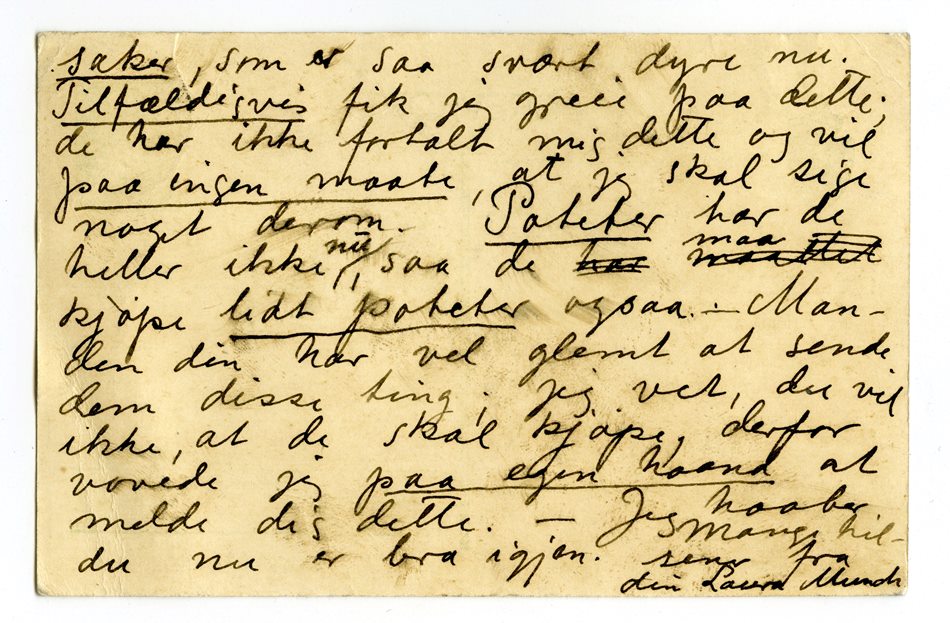 saker, som er saa svært dyre nu.
Tilfældigvis fik jeg greie paa dette;
de har ikke fortalt mig dette og vil
paa ingen maate, at jeg skal sige
noget derom. Poteter har de
heller ikke nu, saa de har maa maattet
kjøpe lidt poteter ogsaa. — Man-
den din har vel glemt at sende
dem disse ting; jeg vet, du vil
ikke, at de skal kjøpe, derfor
vovede jeg paa egen haand at
melde dig dette. — Jeg haaber
du nu er bra igjen. Mange hil-
sener fra
din Laura Munch